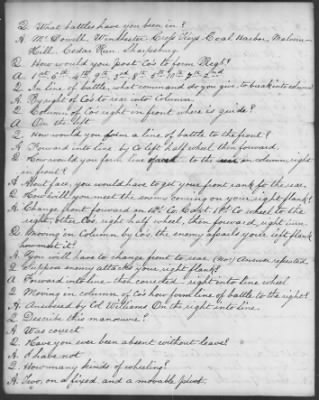 Q. What battles have you been in?
A. McDowell, Winchester, Cross Keys, Coal Harbor, Malvern
Hill, Cedar Run, Sharpsburg
Q. How would you post Co's to form Regt?
A. 1st 6th 4th 9th 3d 8th 5th 10th 7th 2nd
Q. In line of battle, what command do you give, to break into column
A. By right of Co's to rear into Column.
Q. Column of Co's right in front where is guide?
A. On the left
Q. How would you form a line of battle to the front?
A. Forward into line by Co. left half wheel then forward.
Q. How would you form line to the rear in column, right
in front?
A. About face, you would have to get your front rank to the rear.
Q. How will you meet the enemy coming on your right flank?
A. Change front forward on 10th Co. Capt 1st Co wheel to the
right, other Co's right half wheel, then forward right turn.
Q. Moving in column by Co's, the enemy assails your left flank
how meet it?
A. You will have to change front to rear (No) Answer repeated
Q. Suppose enemy attacks your right flank?
A. Forward into line - then corrected - right into line wheel
Q. Moving in column of Co's how form line of battle to the right?
A. Answered by Col Williams On the right into line.
Q. Describe this manouvre?
A. Was correct
Q. Have you ever been absent without leave?
A. I have not
Q. How many kinds of wheeling?
A. Two, on a fixed and a movable pivot.